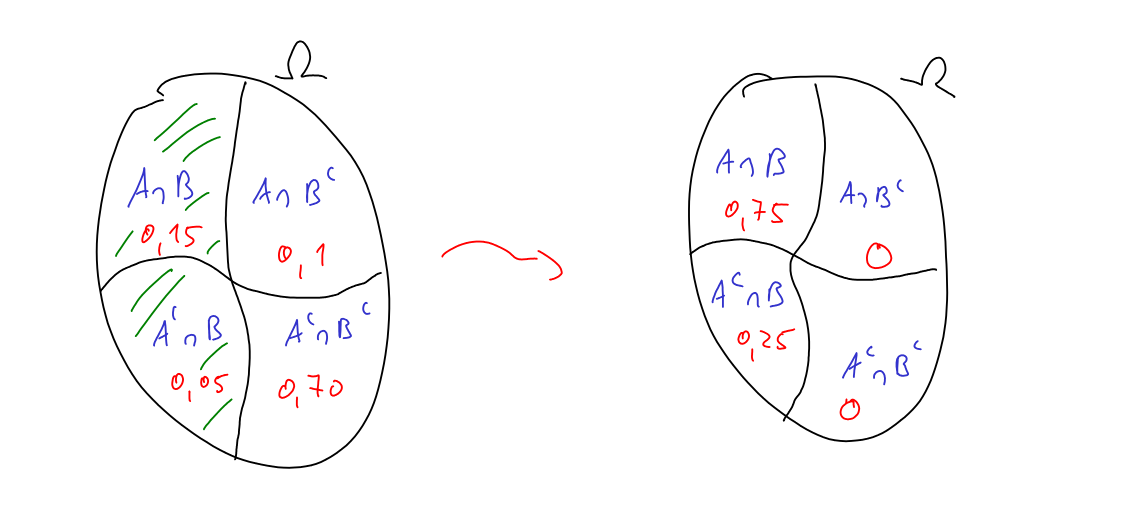 Ω
A∩B
0,15
A∩Bᶜ
0,1
Aᶜ∩B
0,05
Aᶜ∩Bᶜ
0,70
Ω
A∩B
0,75
A∩Bᶜ
0
Aᶜ∩B
0,25
Aᶜ∩Bᶜ
0